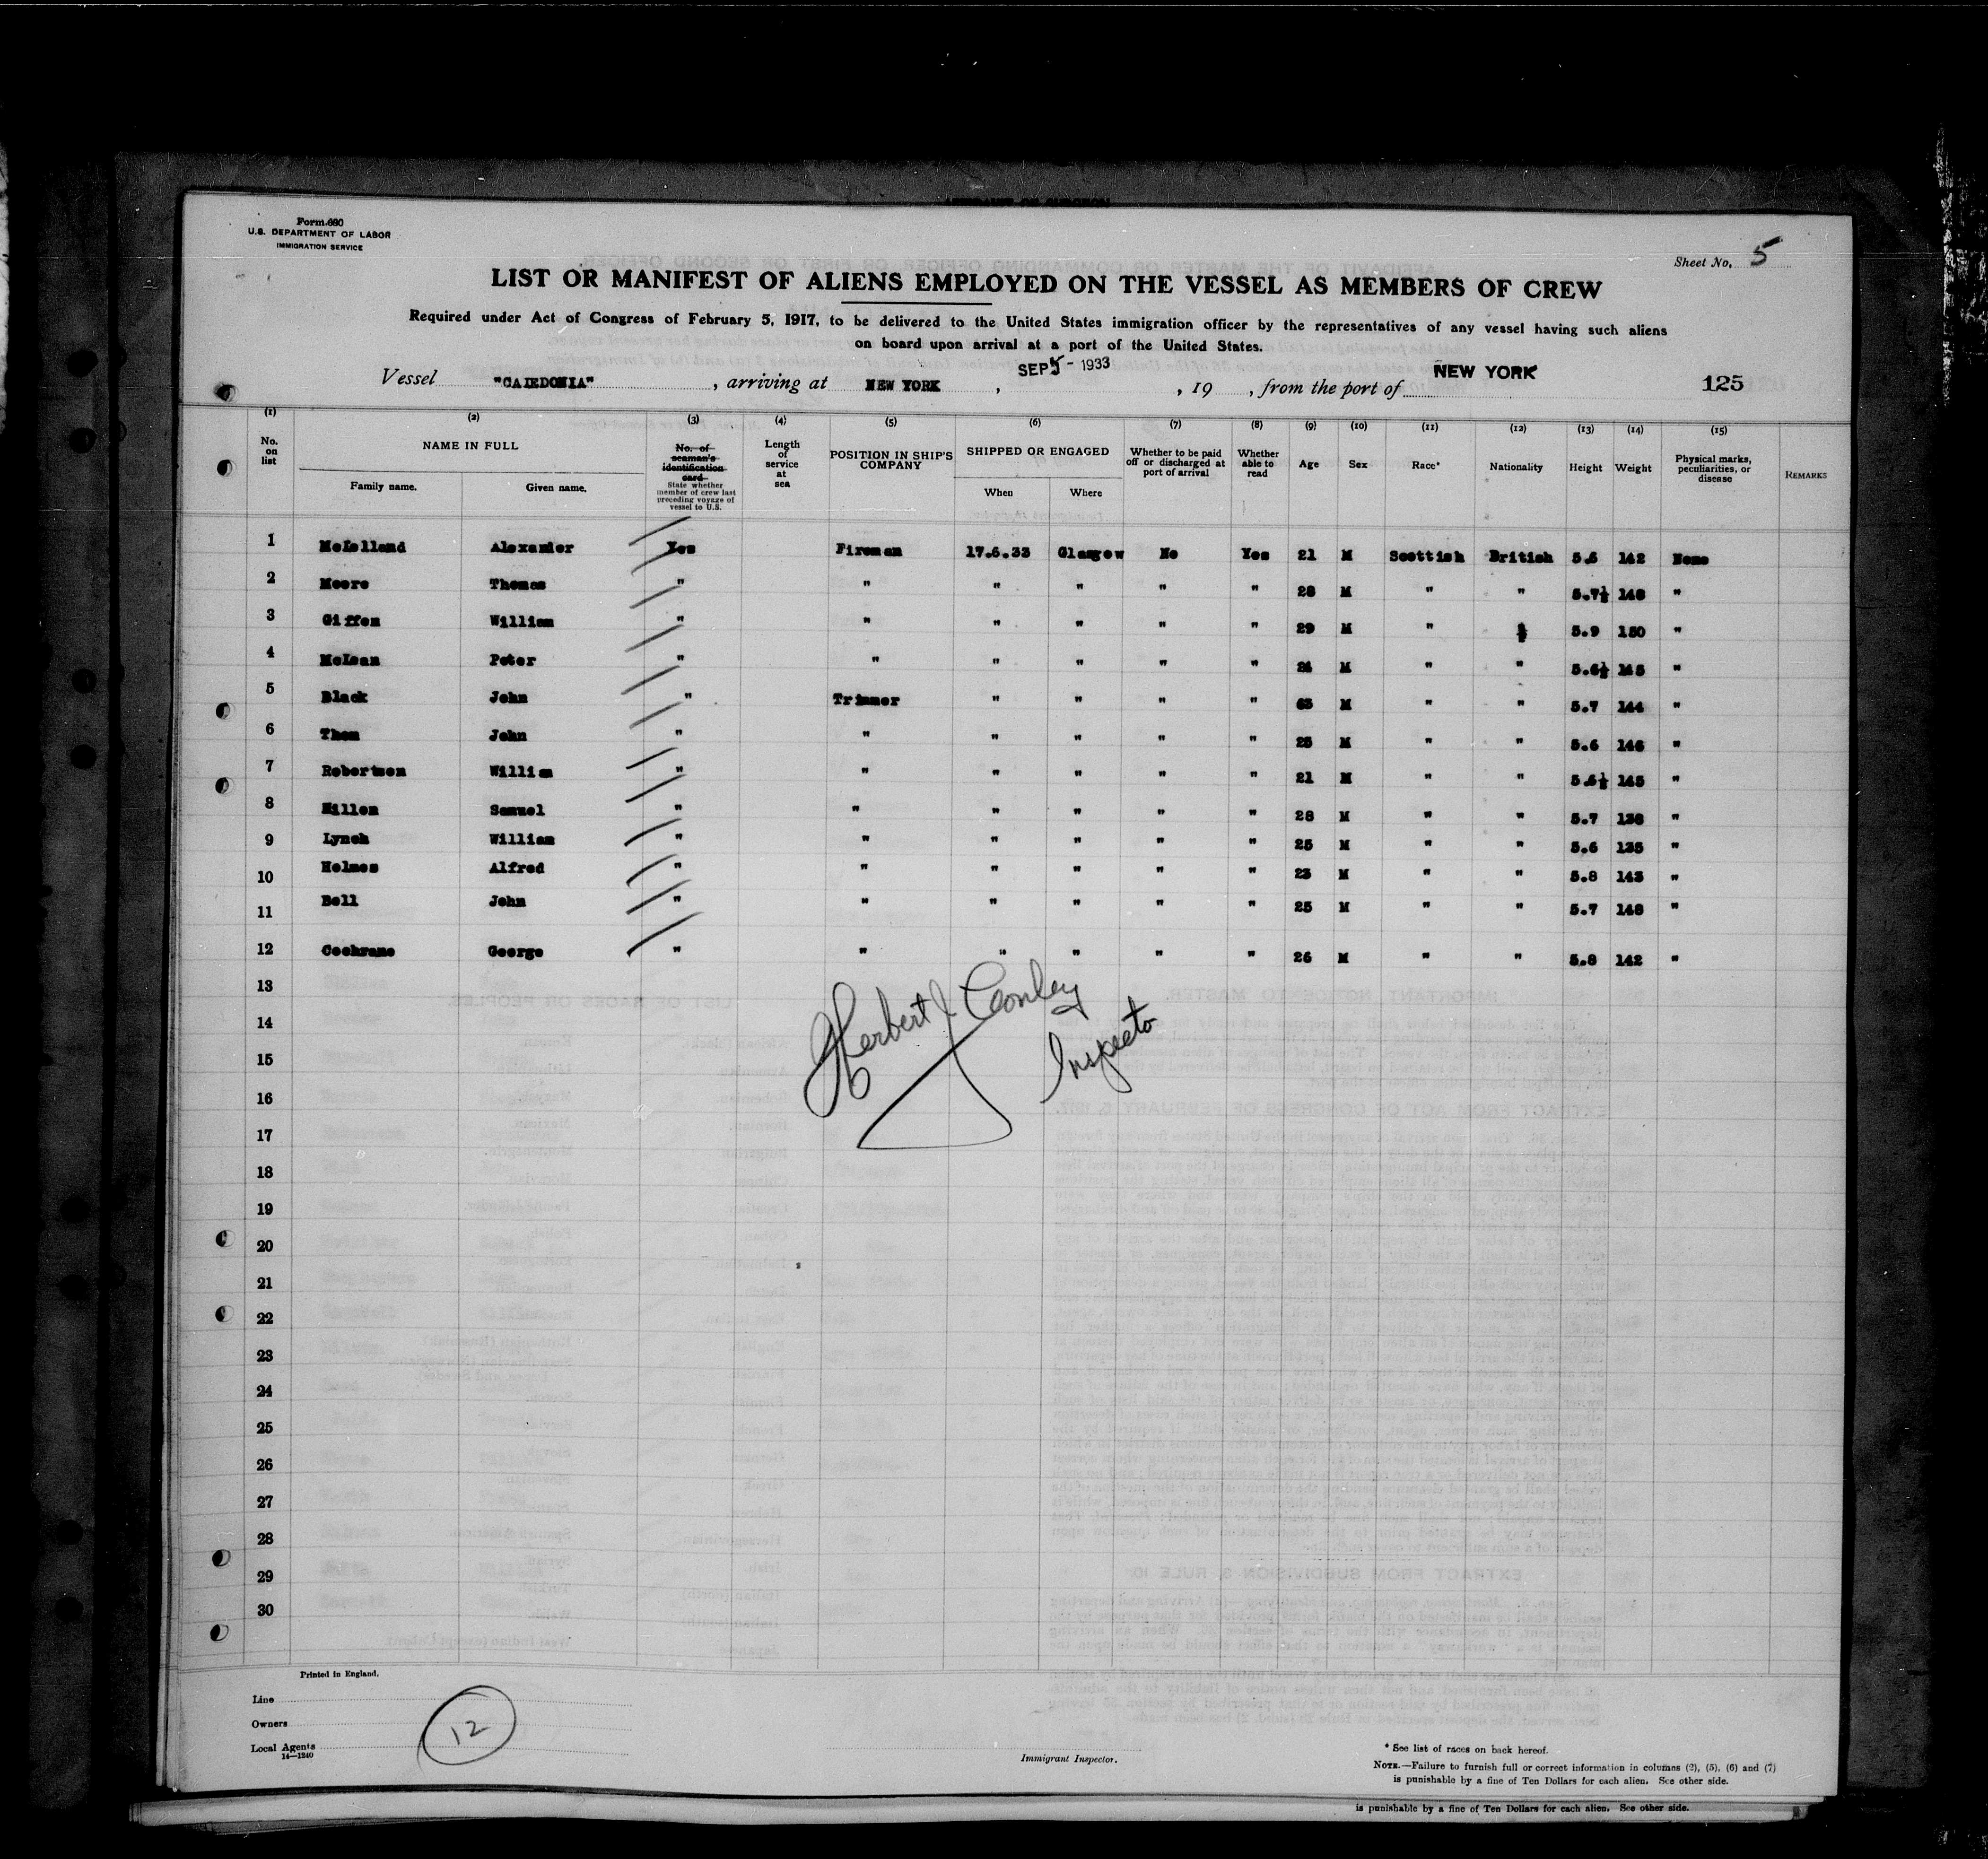 Form 680
U.S. DEPARTMENT OF LABOR
IMMIGRATION SERVICE
Sheet No. 5
LIST OR MANIFEST OF ALIENS EMPLOYED ON THE VESSEL AS MEMBERS OF CREW
Required under Act of Congress of February 5, 1917, to be delivered to the United States immigration officer by the representatives of any vessel having such aliens
on board upon arrival at a port of the United States.
Vessel "CALEDONIA", arriving at NEW YORK, SEP 5 - 1933, 19 , from the port of NEW YORK 125
(1) (2) (3) (4) (5) (6) (7) (8) (9) (10) (11) (12) (13) (14) (15)
No. on list NAME IN FULL Family name. Given name. No. of seaman's identification card State whether member of crew last preceding voyage of vessel to U.S. Length of service at sea POSITION IN SHIP'S COMPANY SHIPPED OR ENGAGED When Where Whether to be paid off or discharged at port of arrival Whether able to read Age Sex Race* Nationality Height Weight Physical marks, peculiarities, or disease REMARKS
1 McLelland Alexander Yes Fireman 17.6.33 Glasgow No Yes 21 M Scottish British 5.6 142 None
2 Moore Thomas " " " " " " 28 M " " 5.7½ 148 "
3 Giffen William " " " " " " 29 M " " 5.9 150 "
4 McLean Peter " " " " " " M " " 5.6½ "
5 Black John " Trimmer " " " " 63 M " " 5.7 144 "
6 Thom John " " " " " " 25 M " " 5.6 146 "
7 Robertson William " " " " " " 21 M " " 5.6½ 145 "
8 Millen Samuel " " " " " " 28 M " " 5.7 138 "
9 Lynch William " " " " " " 25 M " " 5.6 135 "
10 Holmes Alfred " " " " " " 23 M " " 5.8 143 "
11 Bell John " " " " " " 25 M " " 5.7 148 "
12 Cochrane George " " " " " " 26 M " " 5.8 142 "
13
Herbert J. Conley
14
Inspector
15
16
17
18
19
20
21
22
23
24
25
26
27
28
29
30
Printed in England.
Line
Owners
Local Agents
14—1240
12
Immigrant Inspector.
* See list of races on back hereof.
NOTE.—Failure to furnish full or correct information in columns (2), (5), (6) and (7)
is punishable by a fine of Ten Dollars for each alien. See other side.
is punishable by a fine of Ten Dollars for each alien. See other side.